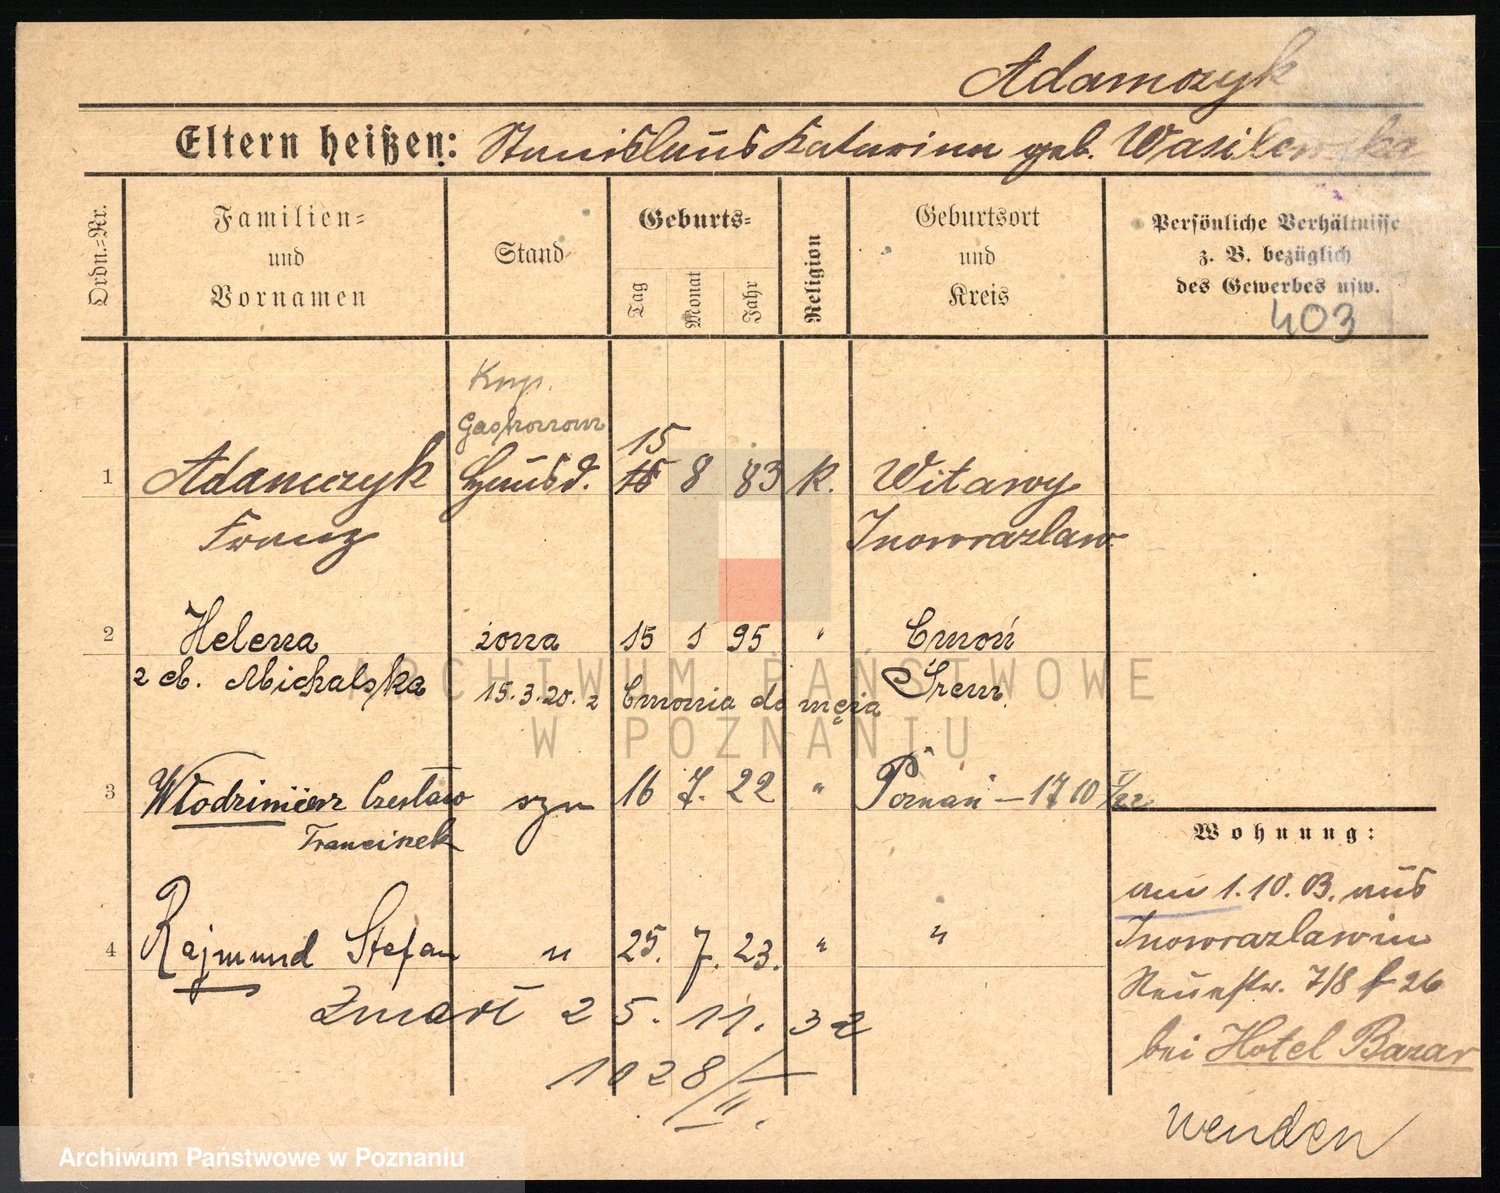 Adamczyk
Eltern heißen: Stanislaus Katarina geb. Wasilewska
Ordn.-Nr.
Familien- und Vornamen
Stand
Geburts-
Tag
Monat
Jahr
Religion
Geburtsort und Kreis
Persönliche Verhältnisse
z. B. bezüglich
des Gewerbes usw.
403
Kup.
Gastronom
15
1 Adamczyk Hausd. 15 8 83 k. Witawy
Franz Inowrazlaw
2 Helena żona 15 1 95 " Cmoń
z d. Michalska 15.3.20. z Cmonia do męża Śrem
ARCHIWUM PAŃSTWOWE
W POZNANIU
3 Włodzimierz Czesław syn 16 7. 22 " Poznań - 1710 1/22
Franciszek
Wohnung:
4 Rajmund Stefan " 25. 7. 23. " "
Zmarł 25. 11. 32
1028/II.
am 1.10.03. aus
Inowrazlaw in
Neuestr. 7/8 f 26
bei Hotel Bazar
wenden
Archiwum Państwowe w Poznaniu